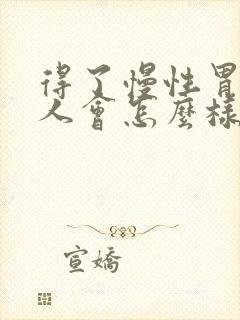 得了慢性胃
人會怎麼樣
宣嬌